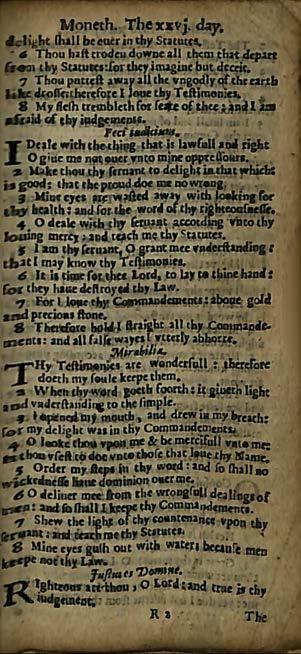 Moneth. The xxvj. day.
delight shall be euer in thy Statutes.
6 Thou hast troden downe all them that depart
from thy Statutes: for they imagine but deceit.
7 Thou puttest away all the vngodly of the earth
like drosse: therefore I loue thy Testimonies.
8 My flesh trembleth for feare of thee: and I am
afraid of thy iudgements.
Feci iudicium.
I Deale with the thing that is lawfull and right
O giue me not ouer vnto mine oppressours.
2 Make thou thy seruant to delight in that which
is good: that the proud doe me no wrong.
3 Mine eyes are wasted away with looking for
thy health: and for the word of thy righteousnesse.
4 O deale with thy seruant according vnto thy
louing mercy: and teach me thy Statutes.
5 I am thy seruant, O grant mee vnderstanding:
that I may know thy Testimonies.
6 It is time for thee Lord, to lay to thine hand:
for they haue destroyed thy Law.
7 For I loue thy Commandements: aboue gold
and precious stone.
8 Therefore hold I straight all thy Commande-
ments: and all false wayes I vtterly abhorre.
Mirabilia.
THy Testimonies are wonderfull: therefore
doeth my soule keepe them.
2 When thy word goeth foorth: it giueth light
and vnderstanding to the simple.
3 I opened my mouth, and drew in my breath:
for my delight was in thy Commandements.
4 O looke thou vpon me & be mercifull vnto me:
as thou vsest to doe vnto those that loue thy Name.
5 Order my steps in thy word: and so shall no
wickednesse haue dominion ouer me.
6 O deliuer mee from the wrongfull dealings of
men: and so shall I keepe thy Commandements.
7 Shew the light of thy countenance vpon thy
seruant: and teach me thy Statutes.
8 Mine eyes gush out with water: because men
keepe not thy Law.
Justus es Domine.
RIghteous art thou, O Lord: and true is thy
iudgement.
R 2 The